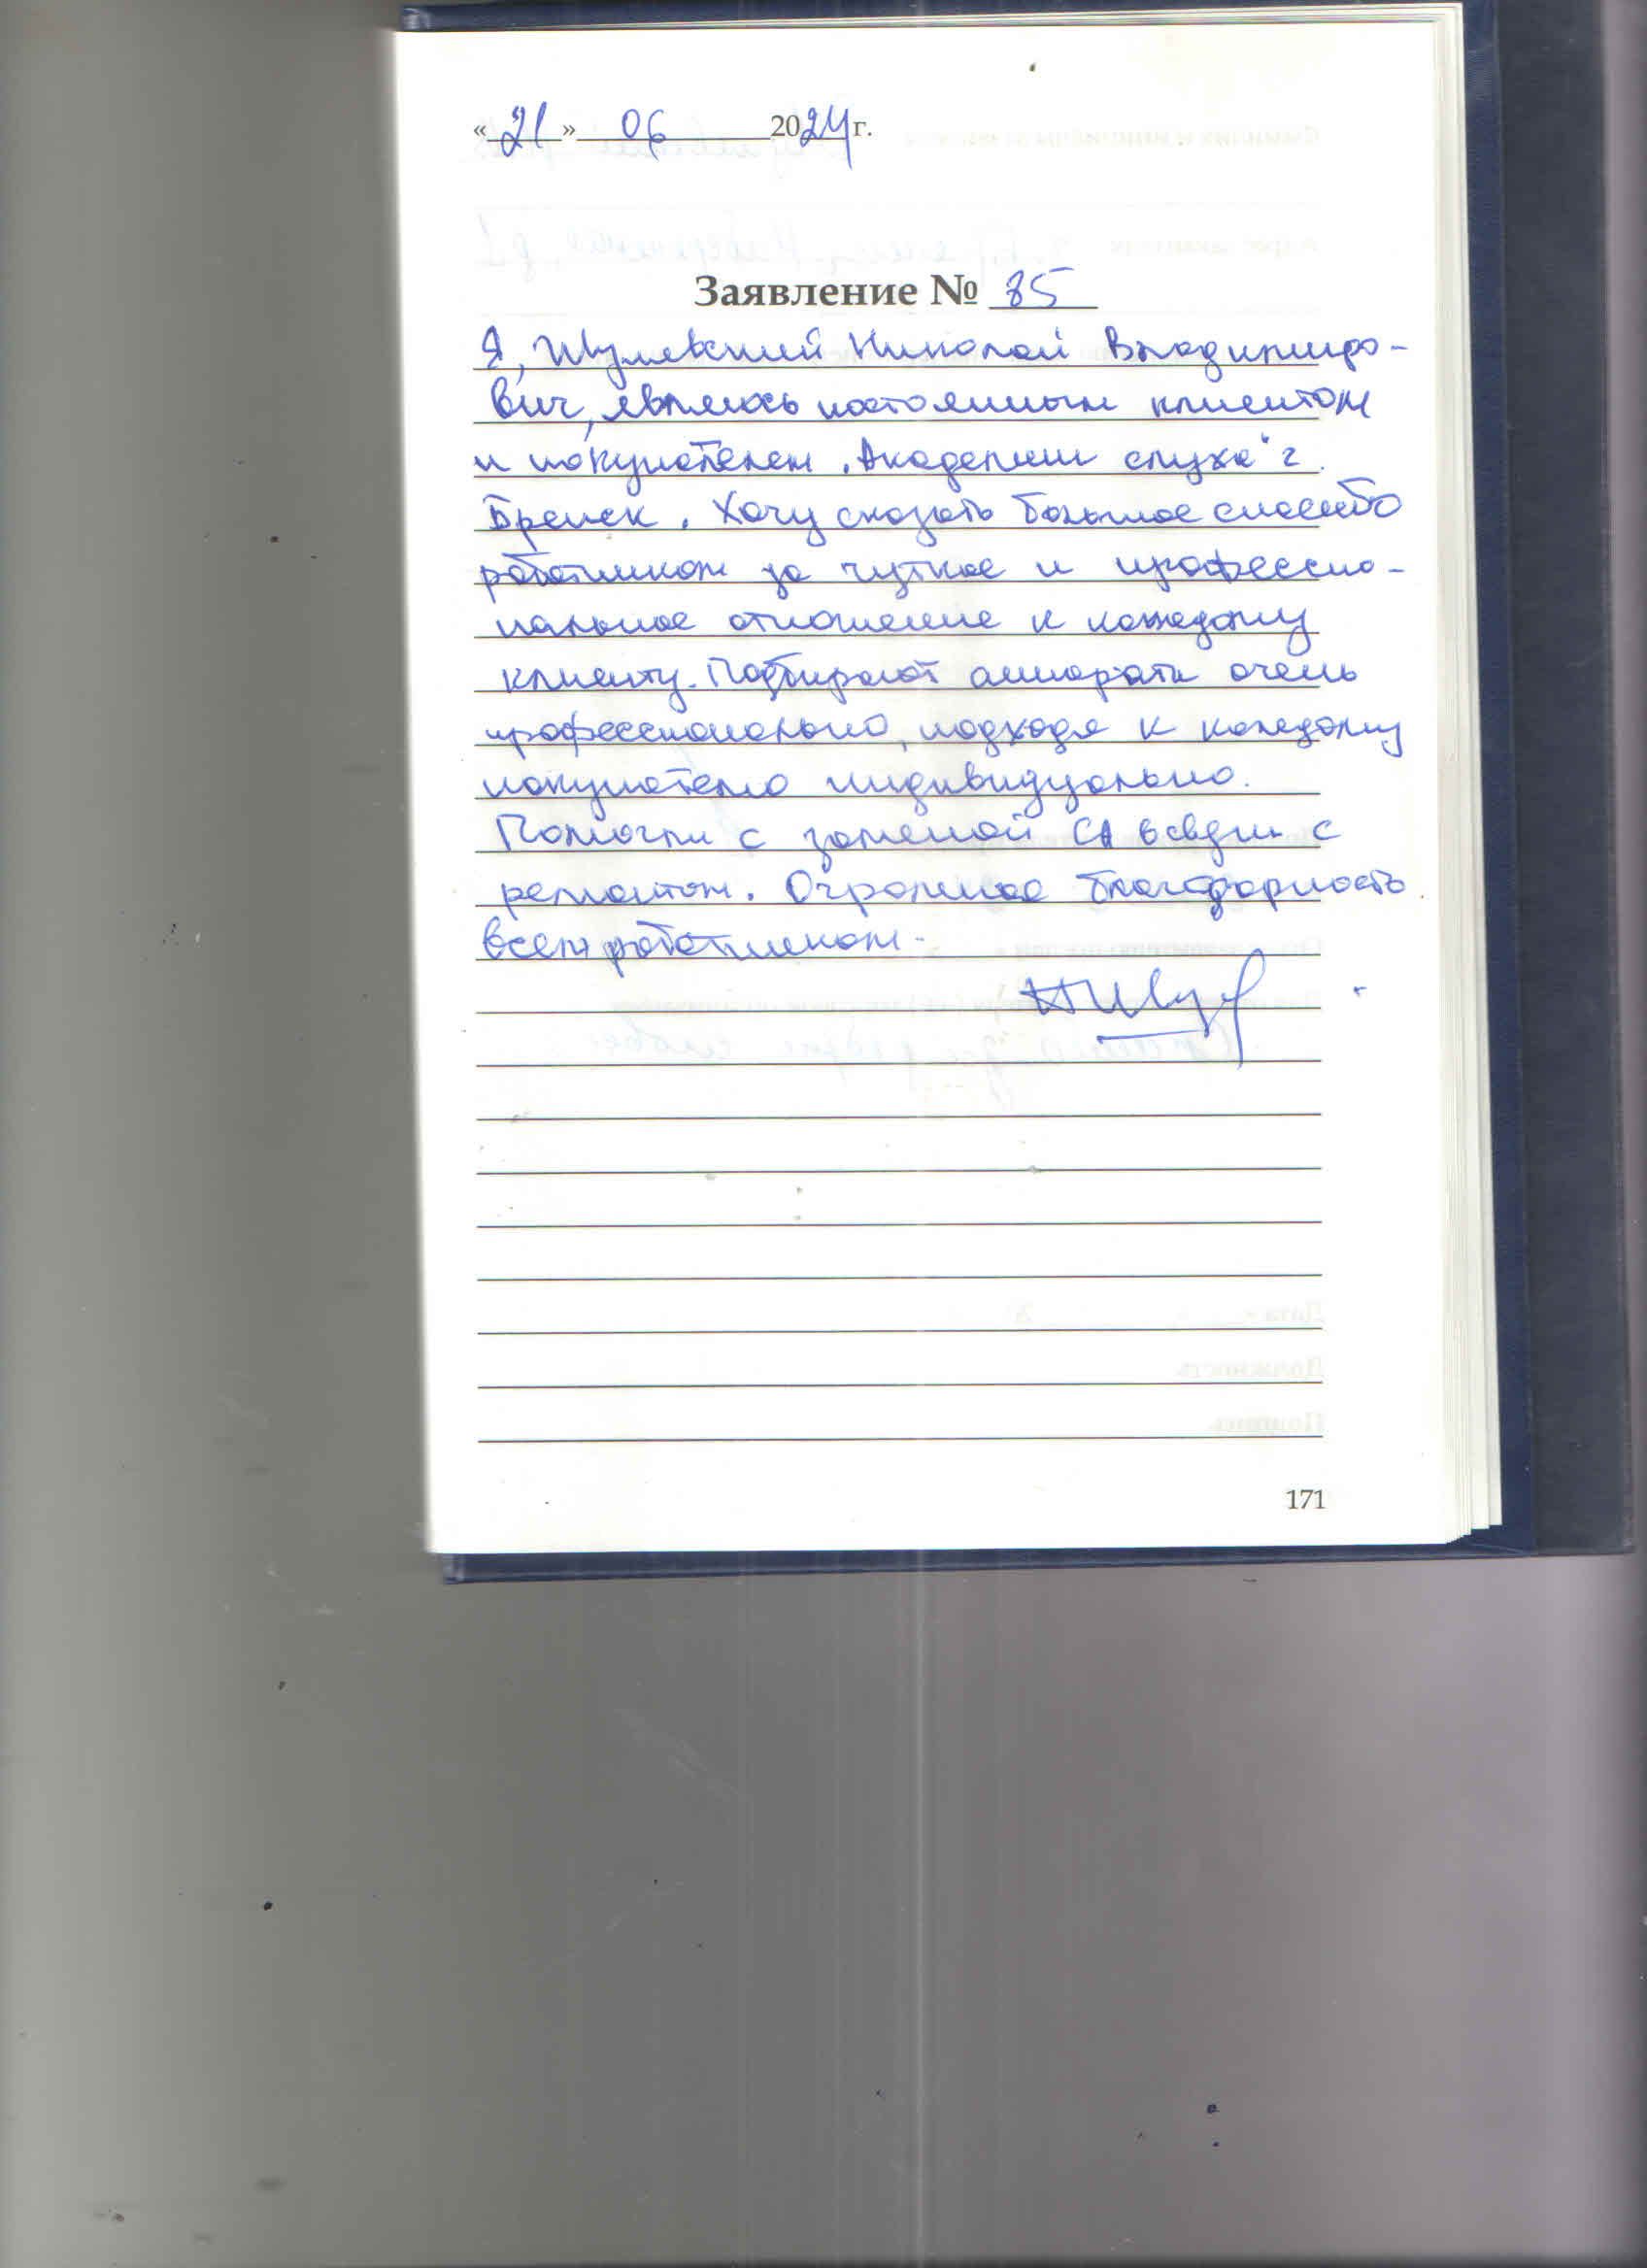 «21» 06 2024 г.
Заявление № 85
Я, Шулевский Николай Владимиро-
вич, являюсь постоянным клиентом
и покупателем „Академии слуха“ г.
Брянск. Хочу сказать большое спасибо
работникам за чуткое и профессио-
нальное отношение к каждому
клиенту. Подбирают аппараты очень
профессионально, подходя к каждому
покупателю индивидуально.
Помогли с заменой СА в связи с
ремонтом. Огромная благодарность
всем работникам.
171